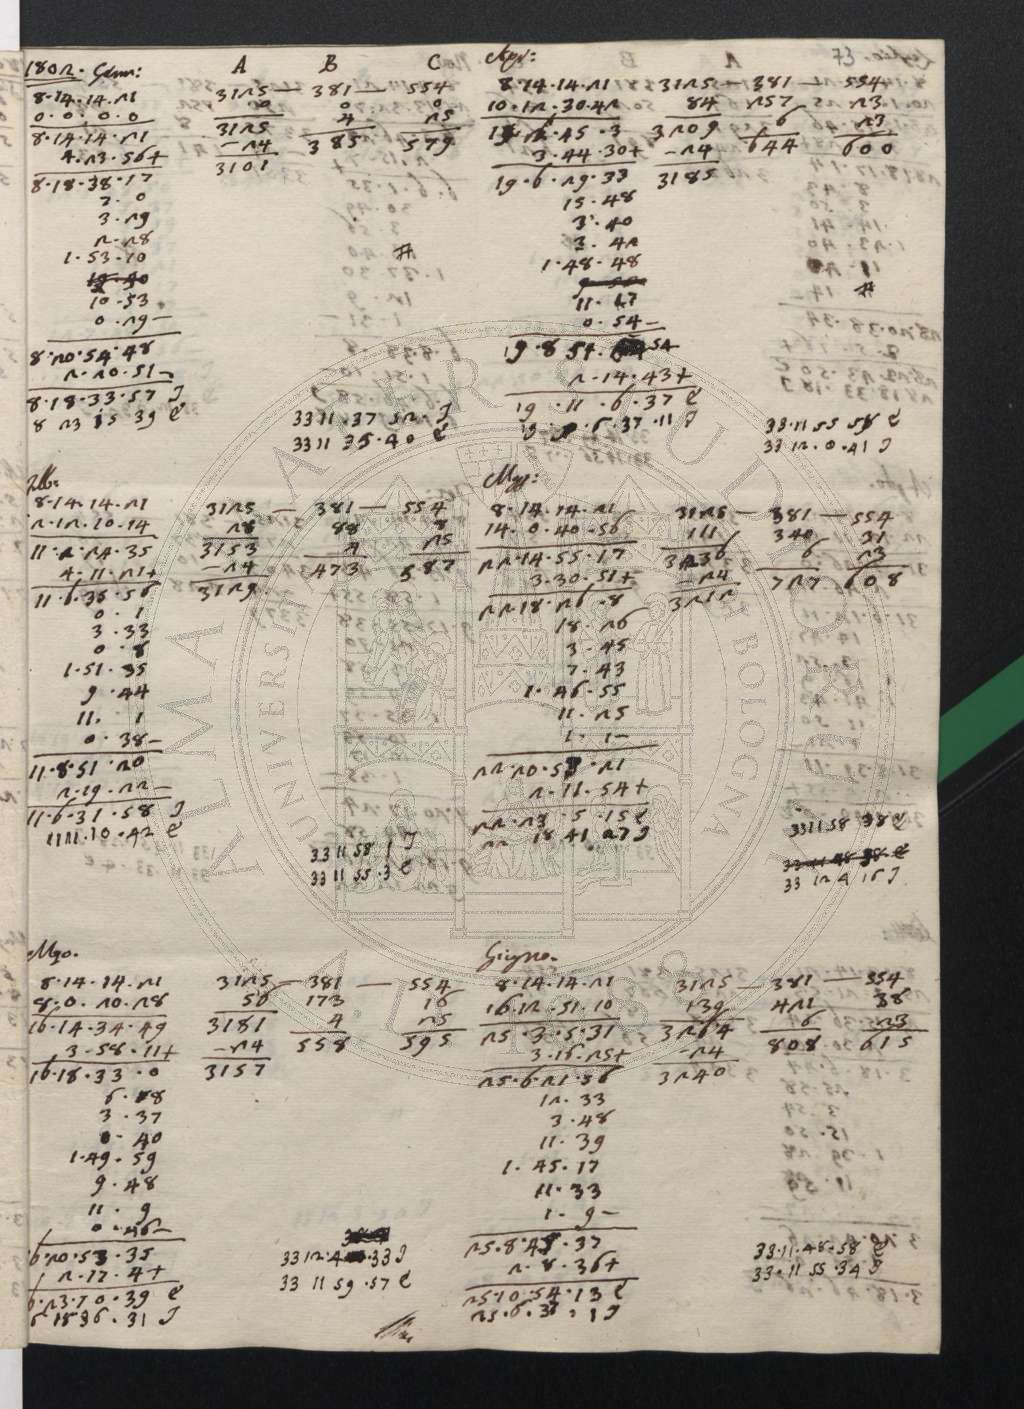 73
1802. Genn:
A B C
8.14.14.21 3125 — 381 — 554
0.0.0.0 0 0 0
8.14.14.21 3125 4 25
4.23.56+ -24 385 579
8.18.38.17 3101
7.0
3.29
2.28
1.53.10
10.53
0.29-
8.20.54.48
2.20.51-
8.18.33.57 J
8 23 15 39 E
33 11.37 52. J
33 11 35.40 E
Apr:
8.14.14.21 3125 — 381 — 554
10.12.30.42 84 257 23
19.2.45.3 3209 6 23
3.44.30+ -24 644 600
19.6.29.33 3185
15.48
3.40
3.42
1.48.48
11.17
0.54-
19.8 54. 54
2.14.43+
19.11.6.37 E
19.6.37.11 J
33.11 55 58 E
33 12.0.41 J
Feb.
8.14.14.21 3125 — 381 — 554
2.12.10.14 28 88 8
11.2.24.35 3153 4 25
4.11.21+ -24 473 587
11.6.36.56 3129
0.1
3.33
0.8
1.51.35
9.44
11.1
0.38-
11.8.51.20
2.19.22-
11.6.31.58 J
11 11.10.42 E
33 11 58 1 J
33 11 55.3 E
Mgg:
8.14.14.21 3125 — 381 — 554
14.0.40.56 111 340 31
22.14.55.17 3236 6 23
3.30.51+ -24 727 608
22.18.26.8 3212
18.26
3.45
7.43
1.46.55
11.25
1.1-
22.20.58.21
2.11.54+
22.23.5.15 E
22 18 41 27 J
33 11 58 38 E
33 12 4 16 J
Mzo.
8.14.14.21 3125 — 381 — 554
8.0.20.28 56 173 16
16.14.34.49 3181 4 25
3.58.11+ -24 558 595
16.18.33.0 3157
6.28
3.37
0.40
1.49.59
9.48
11.9
0.46-
6.20.53.35
2.17.4+
6.23.10.39 E
6 18 36.31 J
33 12.4.33 J
33 11 59.57 E
Giugno.
8.14.14.21 3125 — 381 — 554
16.12.51.10 139 421 38
25.3.5.31 3264 6 23
3.16.25+ -24 808 615
25.6.21.56 3240
12.33
3.48
11.39
1.45.17
11.33
1.9-
25.8.45.37
2.8.36+
25 10.54.13 E
25.6.37.1 J
33.11.48.58 E
33.11 55.34 J
ALMA MATER STUDIORUM
UNIVERSITÀ DI BOLOGNA